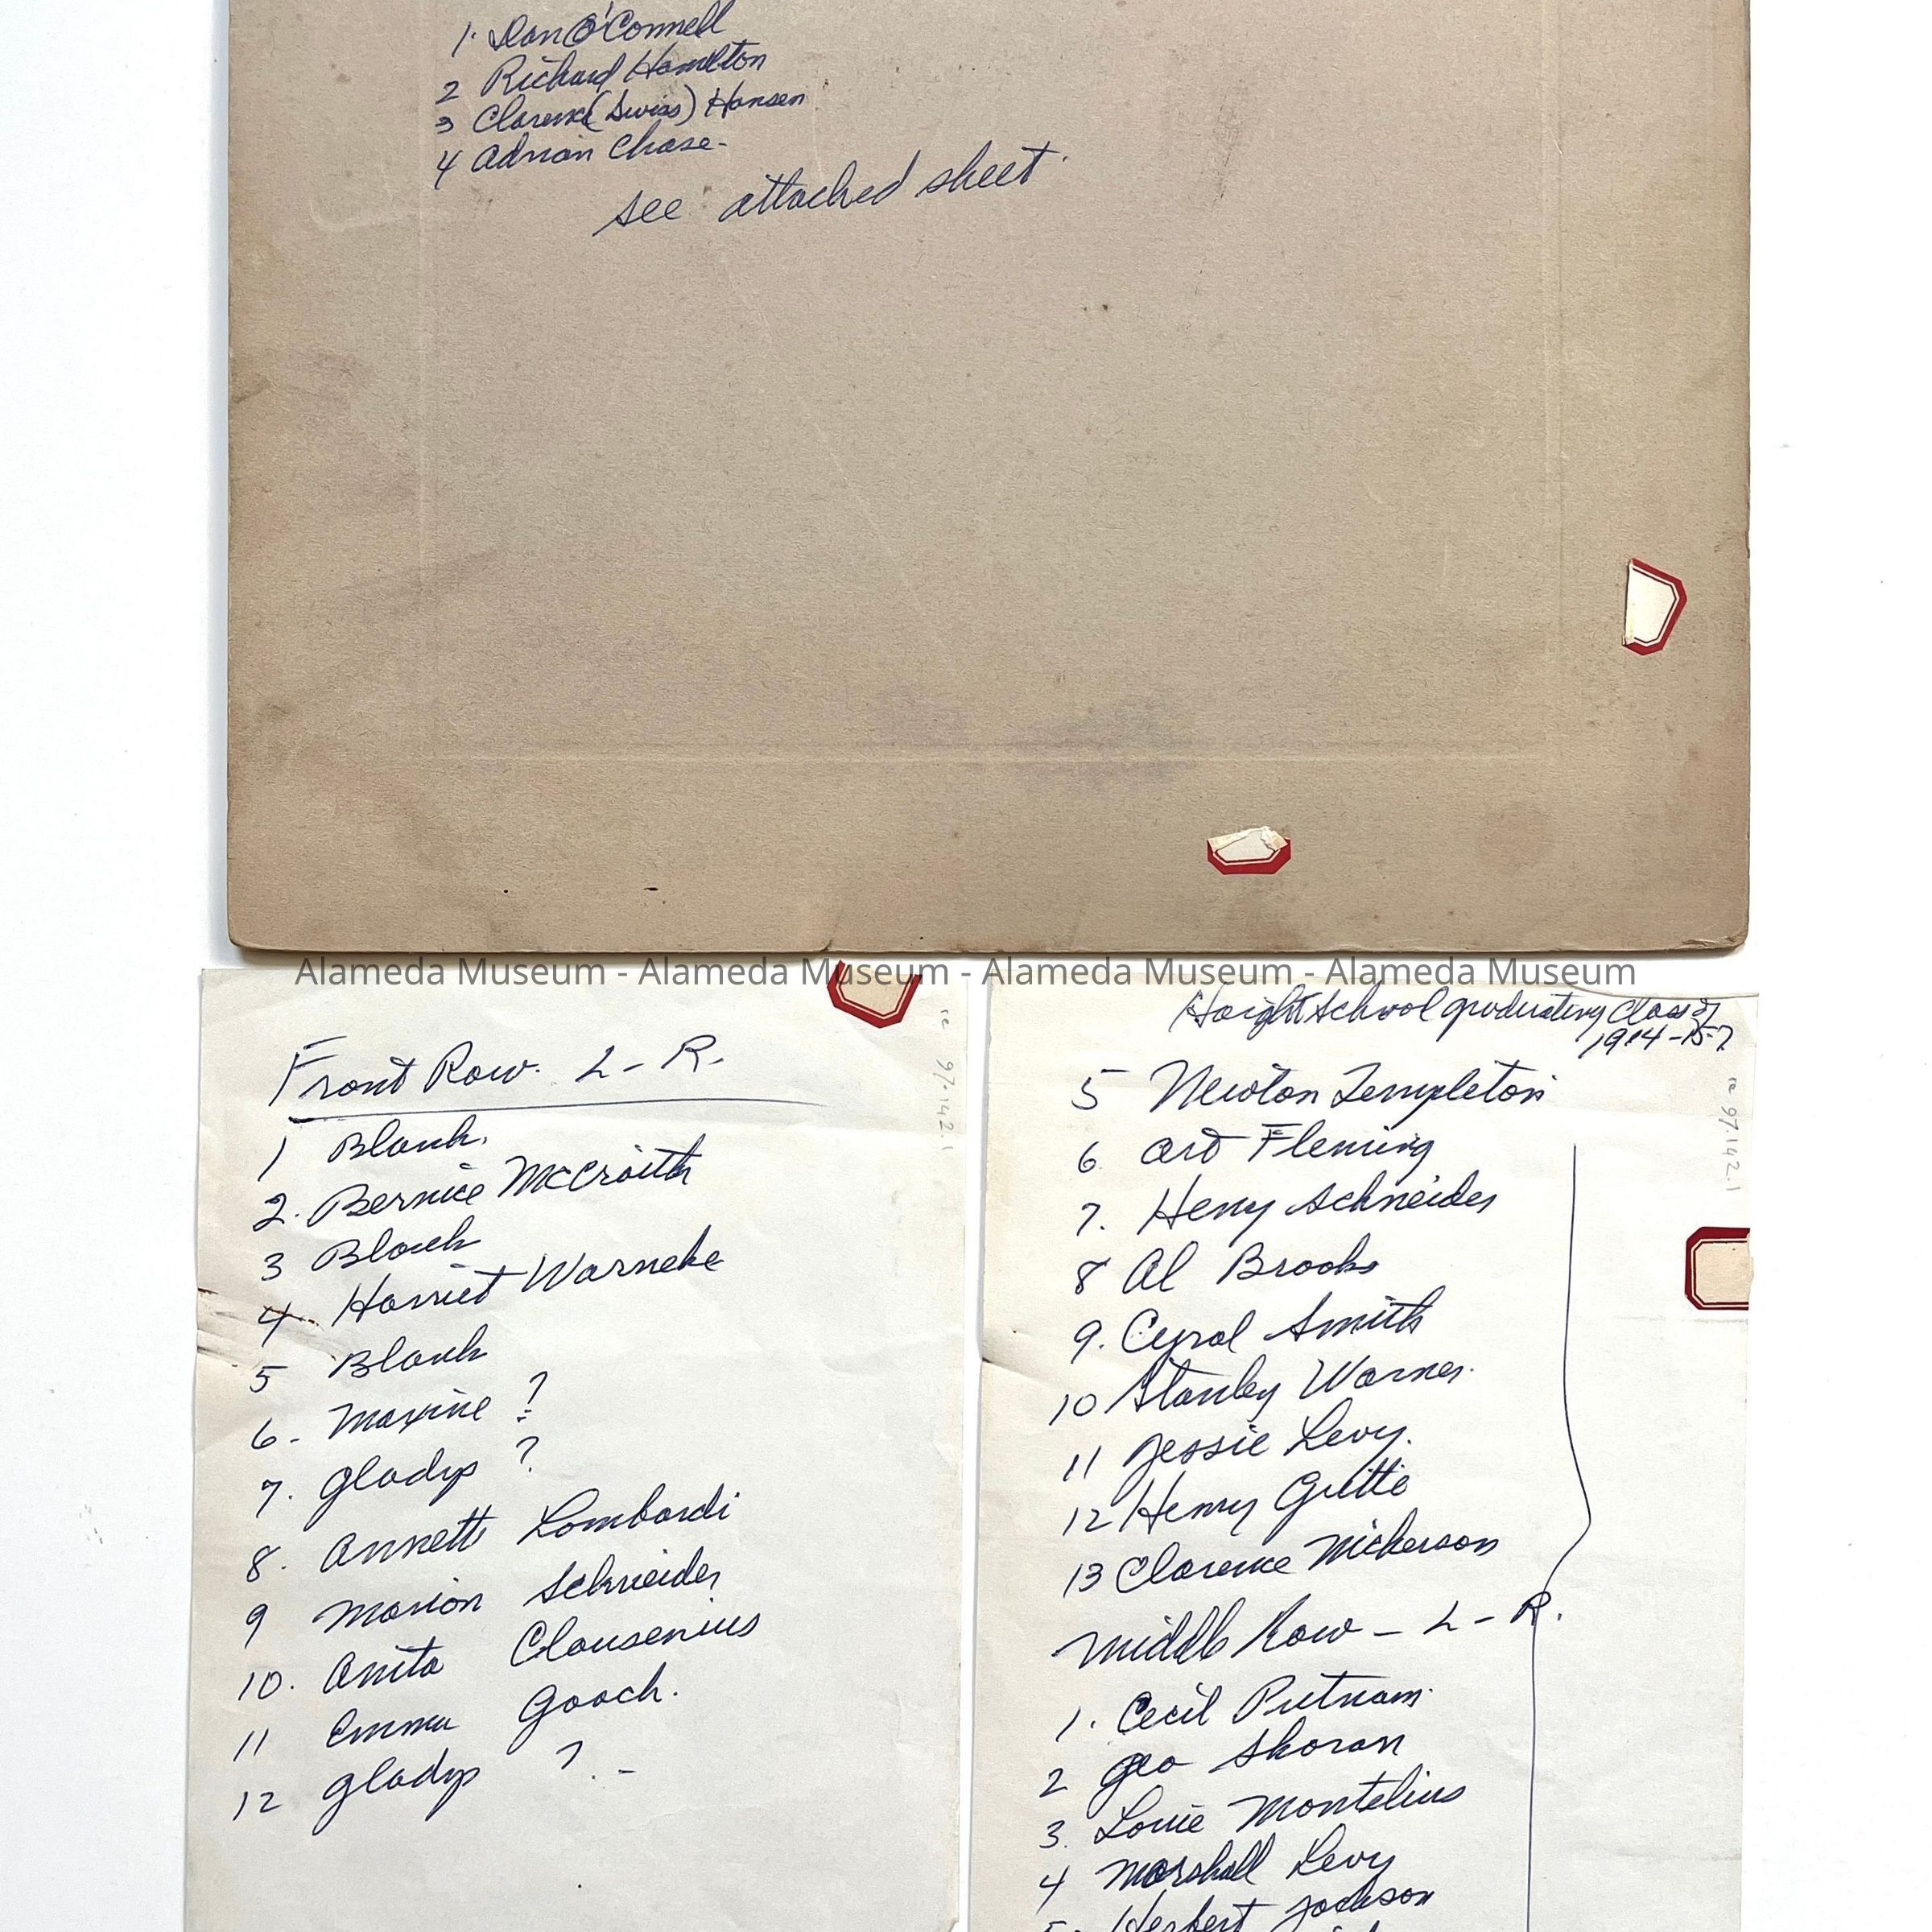 1. Dan O'Connell
2 Richard Hamilton
3 Clarence (Swiss) Hansen
4 Adrian Chase-
see attached sheet
Alameda Museum - Alameda Museum - Alameda Museum - Alameda Museum
re 97.142.1
Front Row. L - R.
1 Blank.
2. Bernice McCraith
3 Blank
4 Harriet Warneke
5 Blank
6- Maxine ?
7. Gladys ?
8. Annette Lombardi
9 Marion Schneider
10. Anita Clausenius
11 Emma Gooch.
12 Gladys ? -
Haight School graduating Class of
1914-15-?
re 97.142.1
5 Newton Templeton
6 Art Fleming
7. Henry Schneider
8 Al Brooks
9. Cyral Smith
10 Stanley Warner.
11 Jessie Levy.
12 Henry
13 Clarence Nickerson
Middle Row - L - R.
1. Cecil Putnam
2 Geo Shoran
3. Louie Montelius
4 Marshall Levy
5. Herbert Jackson